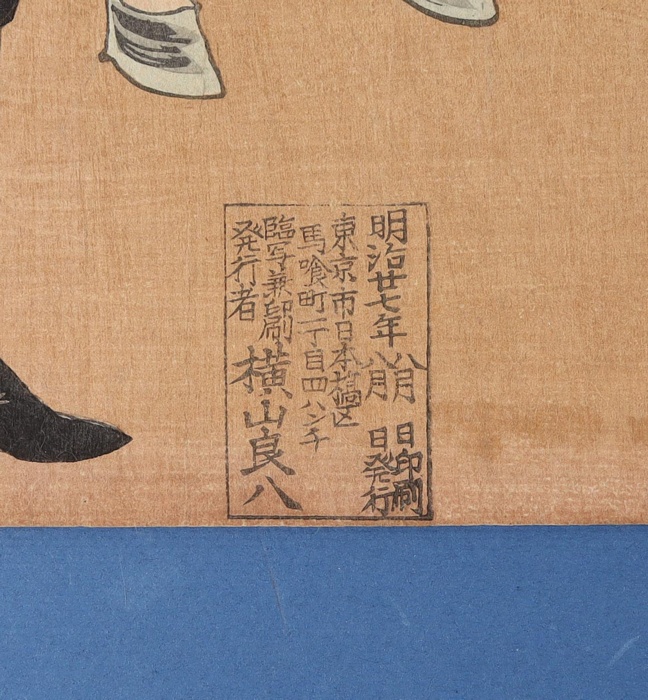 明治廿七年
八月 日印刷
八月 日発行
東京市日本橋区
馬喰町一丁目四ハンチ
臨写兼印刷
発行者
横山良八